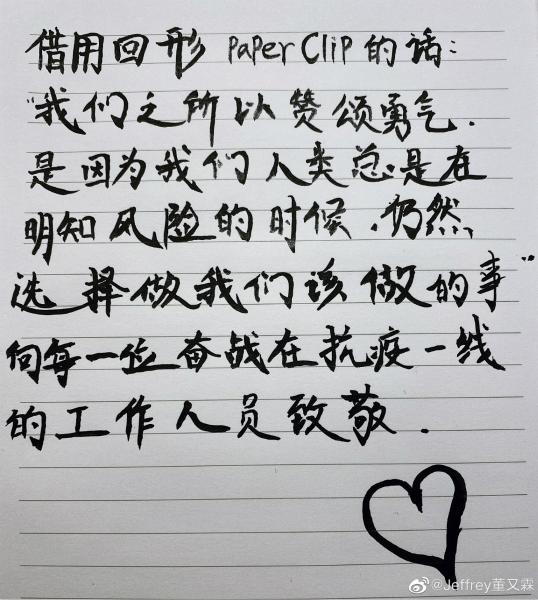 借用回形 PaPer Clip 的话：
“我们之所以赞颂勇气．
是因为我们人类总是在
明知风险的时候、仍然
选择做我们该做的事”
向每一位奋战在抗疫一线
的工作人员致敬．
@Jeffrey董又霖